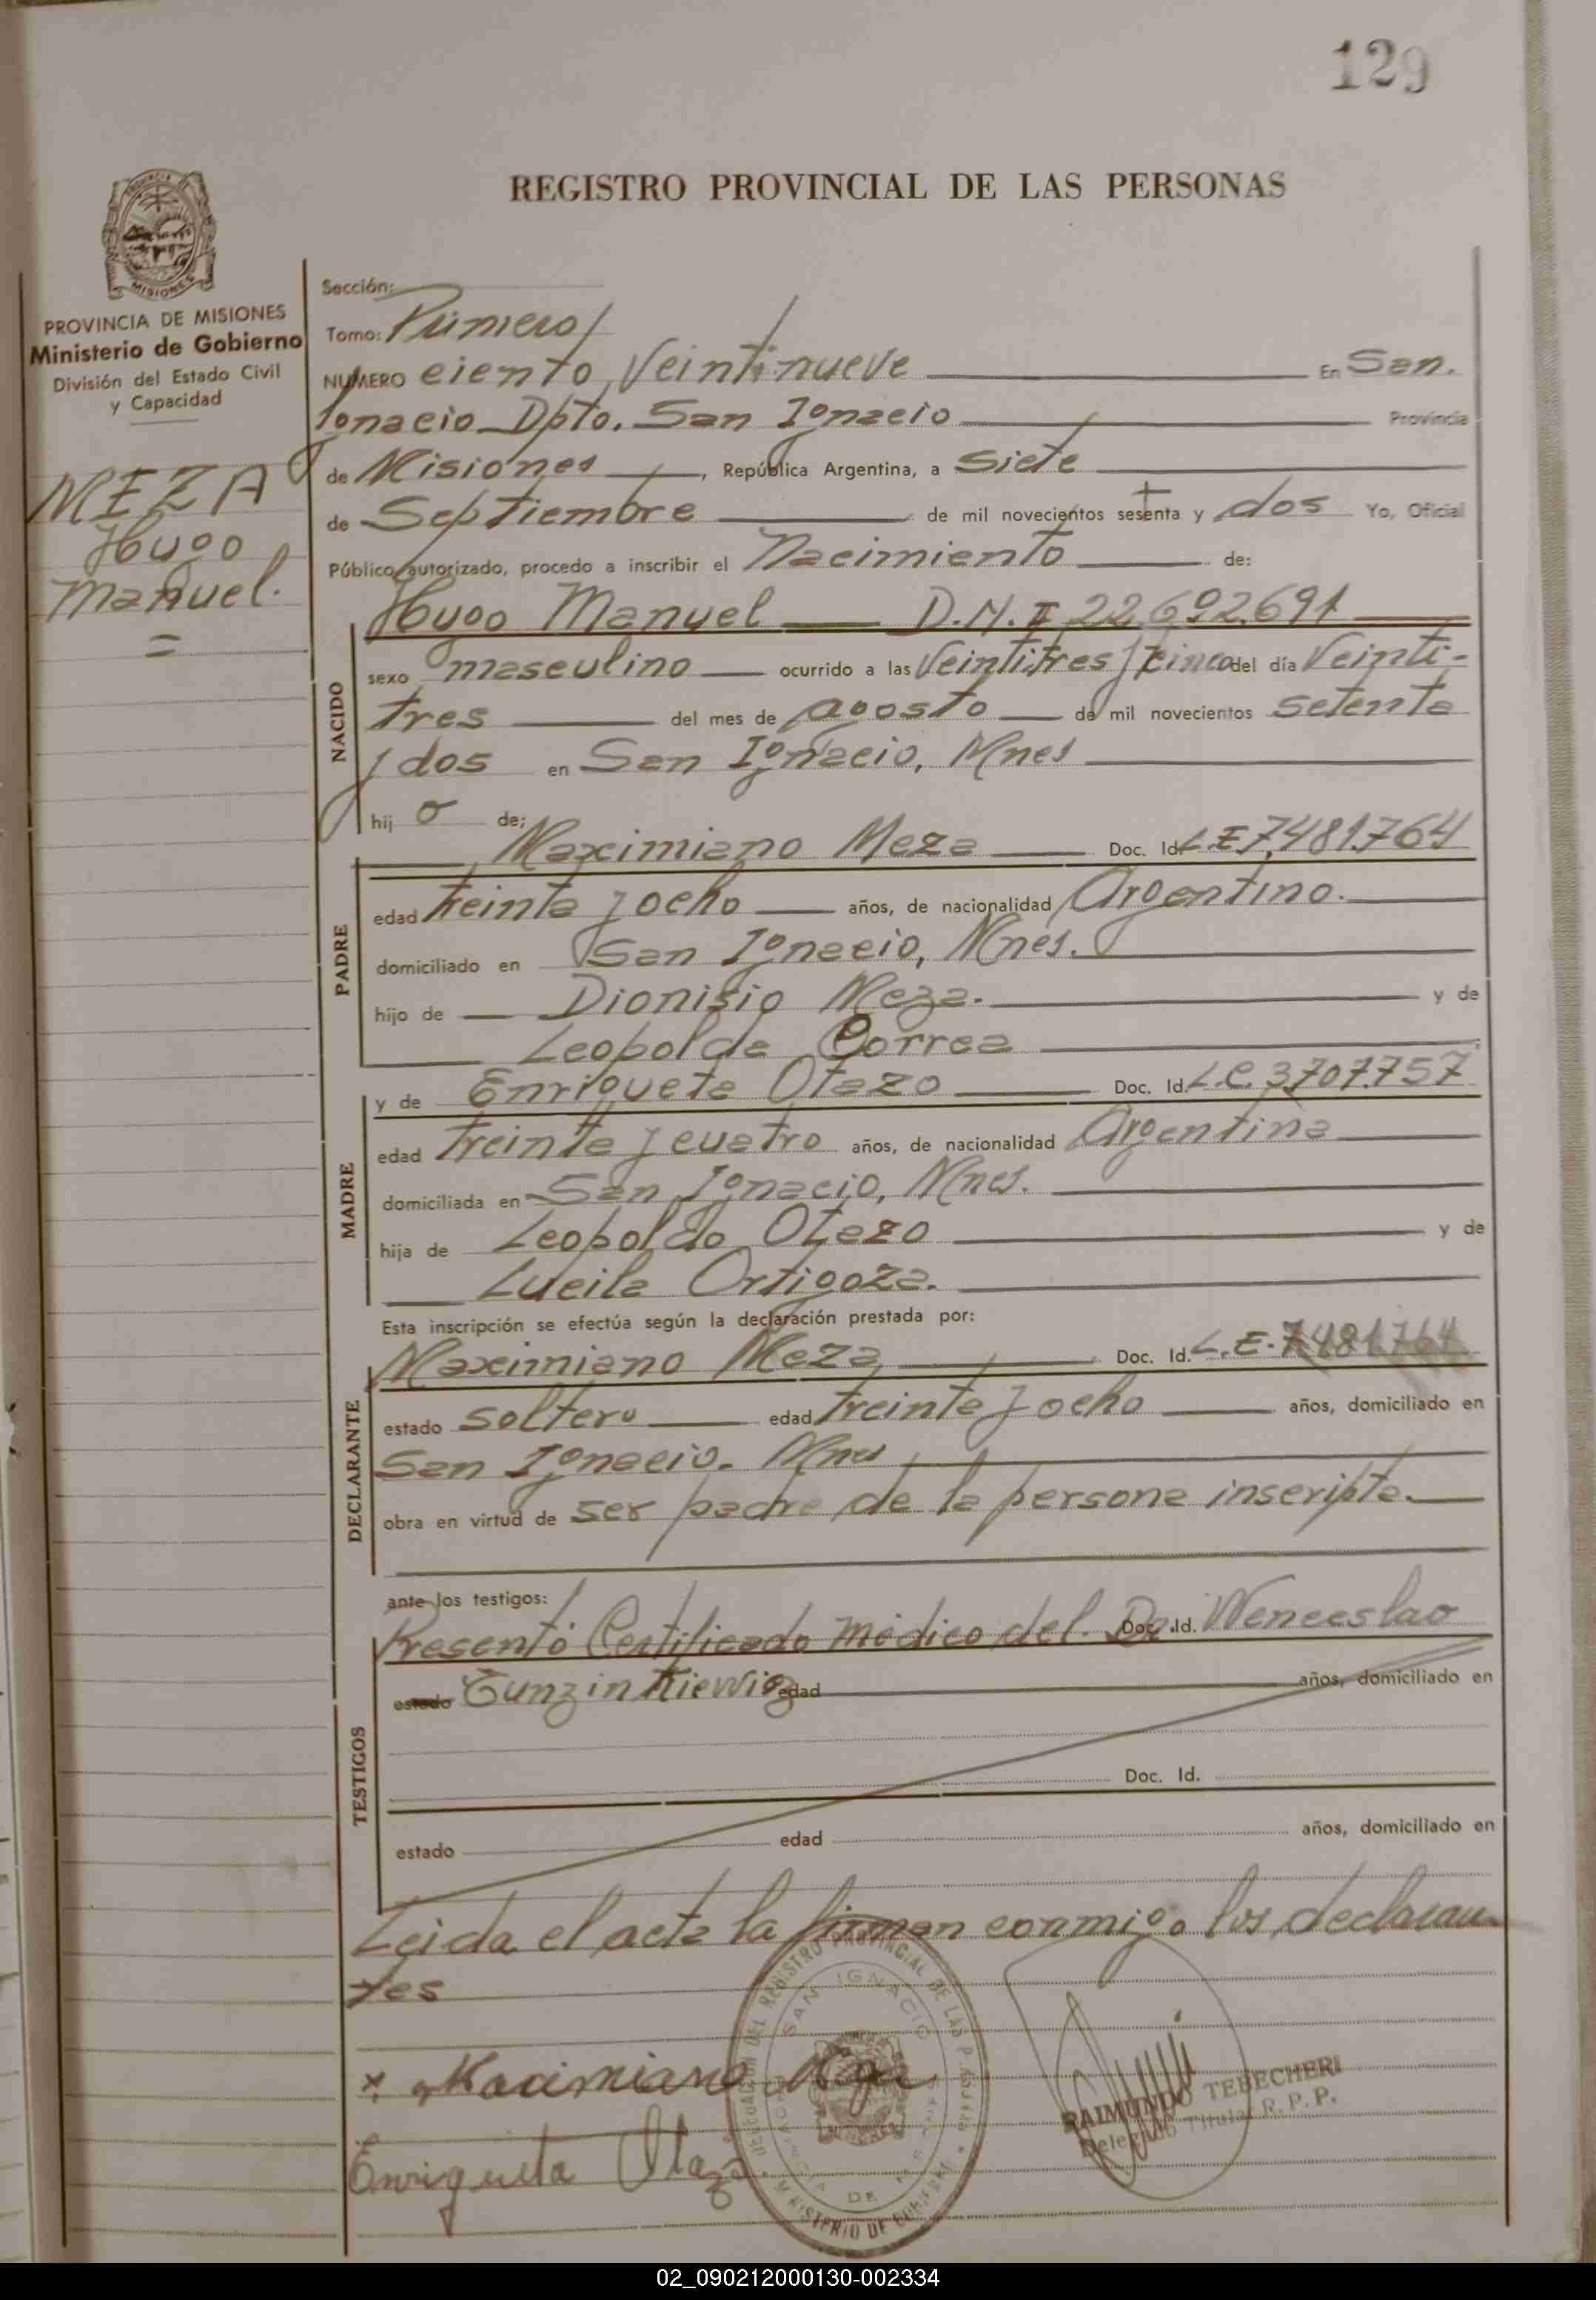 129
REGISTRO PROVINCIAL DE LAS PERSONAS
MISIONES
PROVINCIA DE MISIONES
Ministerio de Gobierno
División del Estado Civil
y Capacidad
MEZA
Hugo
Manuel.
=
Sección:
Tomo: Primero
NUMERO ciento Veintinueve En San.
Ignacio Dpto. San Ignacio Provincia
de Misiones, República Argentina, a siete
de Septiembre de mil novecientos sesenta y dos Yo, Oficial
Público autorizado, procedo a inscribir el Nacimiento de:
Hugo Manuel D.N.I 22.692.691
NACIDO
sexo masculino ocurrido a las Veintitres y cinco del día Veinti-
tres del mes de agosto de mil novecientos setenta
y dos en San Ignacio, Mnes
hij o de;
Maximiano Meza Doc. Id. L.E 7.481.764
PADRE
edad treinta y ocho años, de nacionalidad Argentino.
domiciliado en San Ignacio, Mnes.
hijo de Dionisio Meza. y de
Leopolda Correa
y de Enriqueta Otazo Doc. Id. L.C. 3.707.757
MADRE
edad treinta y cuatro años, de nacionalidad Argentina
domiciliada en San Ignacio, Mnes.
hija de Leopoldo Otazo y de
Lucila Ortigoza.
Esta inscripción se efectúa según la declaración prestada por:
Maximiano Meza Doc. Id. L.E. 7481764
DECLARANTE
estado soltero edad treinta y ocho años, domiciliado en
San Ignacio. Mnes
obra en virtud de ser padre de la persona inscripta.
ante los testigos:
TESTIGOS
Presentó Certificado Médico del Dr. Doc. Id. Wenceslao
estado edad años, domiciliado en
Doc. Id.
estado edad años, domiciliado en
Leida el acta la firman conmigo los declaran-
tes
DELEGACION DEL REGISTRO PROVINCIAL DE LAS PERSONAS
SAN IGNACIO
MINISTERIO DE GOBIERNO
x Maximiano Meza
RAIMUNDO TEBECHERI
Delegado Titular R. P. P.
Enriqueta Otazo
02_090212000130-002334